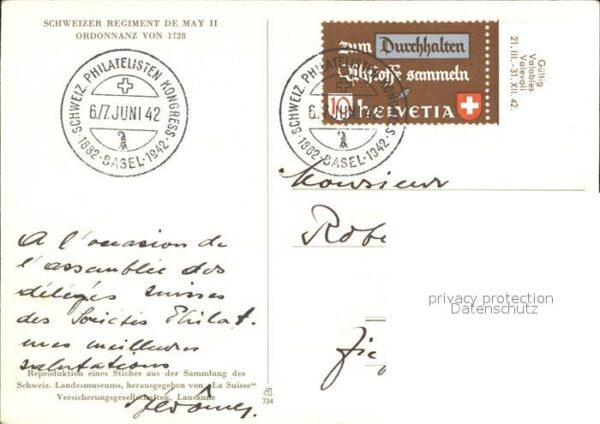 SCHWEIZER REGIMENT DE MAY II
ORDONNANZ VON 1728
SCHWEIZ. PHILATELISTEN KONGRESS
6./7. JUNI 42
·1882·BASEL·1942·
zum Durchhalten
Altstoffe sammeln
10 HELVETIA
SCHWEIZ. PHILATELISTEN KONGRESS
6./7. JUNI 42
·1882·BASEL·1942·
Gültig
Valables
Valevoli
21. III.-31. XII. 42.
Monsieur
Robe
privacy protection
Datenschutz
A l'occasion de
l'assemblée des
délégés suisses
des Sociétés Philat.
mes meilleures
salutations
Reproduktion eines Stiches aus der Sammlung des
Schweiz. Landesmuseums, herausgegeben von „La Suisse"
Versicherungsgesellschaften, Lausanne
734